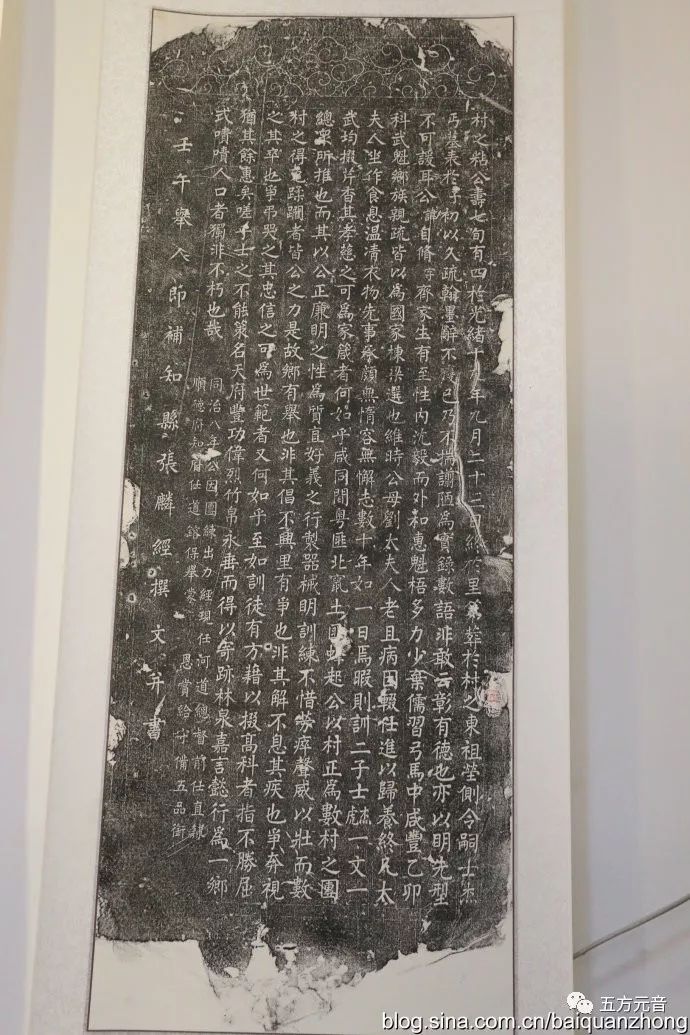 村之粘公壽七旬有四於光緒十 年九月二十三日終於里第葬於村之東祖塋側令嗣士杰
丐墓表於予初以久疏翰墨辭不 已乃不揣謭陋為實錄數語非敢云彰有德也亦以明先型
不可諼耳公諱自脩字齊家生有至性內沈毅而外和惠魁梧多力少棄儒習弓馬中咸豐乙卯
科武魁鄉族親疏皆以為國家棟梁選也維時公母劉太夫人老且病因輟仕進以歸養終凡太
夫人坐作食息溫凊衣物先事承顏無惰容無懈志數十年如一日焉暇則訓二子士杰虎一文一
武均掇芹香其孝慈之可為家箴者何如乎咸同間粵匪北竄土匪蜂起公以村正為數村之團
總眾所推也而其以公正廉明之性為質直好義之行製器械明訓練不惜勞瘁聲威以壯而數
村之得免蹂躪者皆公之力是故鄉有舉也非其倡不興里有爭也非其解不息其疾也爭奔視
之其卒也爭弔哭之其忠信之可為世範者又何如乎至如訓徒有方藉以掇高科者指不勝屈
猶其餘惠矣嗟乎士之不能策名天府豐功偉烈竹帛永垂而得以寄跡林泉嘉言懿行為一鄉
式嘖嘖人口者獨非不朽也哉
同治八年公因團練出力經現任河道總督前任直隸
順德府知府任道鎔保舉蒙 恩賞給守備五品銜
壬午舉人即補知縣張麟經撰文并書
五方元音
blog.sina.com.cn/baiquanzhong